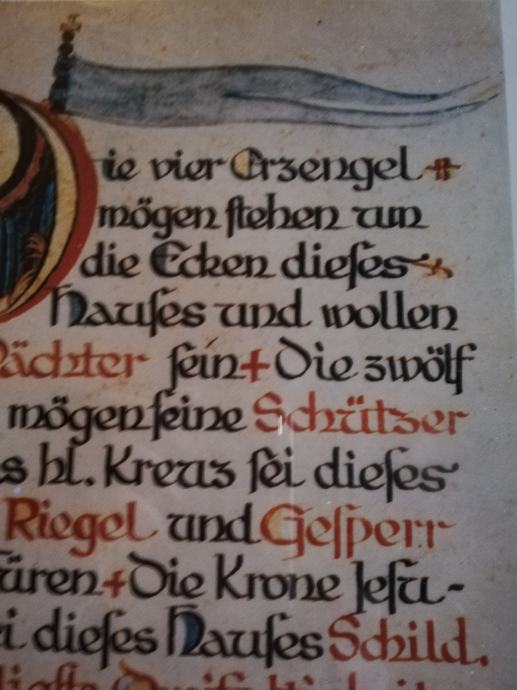 Die vier Erzengel
mögen ſtehen um
die Ecken dieſes
Hauſes und wollen
Wächter ſein + Die zwölf
mögen ſeine Schützer
s hl. Kreuz ſei dieſes
Riegel und Geſperr
Türen + Die Krone Jeſu-
i dieſes Hauſes Schild.